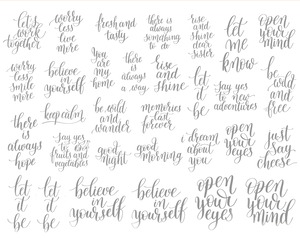 let's
work
together
worry
less
live
more
fresh and
tasty
there is
always
something
to do
rise
and
shine
dear
sister
let
me
know
open
your
mind
worry
less
smile
more
believe
yourself
You
are
my
home
there
is
always
a way
rise
and
shine
let
it
be
Say yes
to new
adventures
be wild
and
free
there
is
always
hope
keep calm
Say yes
to
fruits and
vegetables
be wild
and
wander
good
night
memories
last
forever
good
morning
i dream
about
you
open
your
eyes
just
Say
cheese
let
it
be
let
it
be
believe
in
yourself
believe
in
yourself
open
your
eyes
open
your
mind